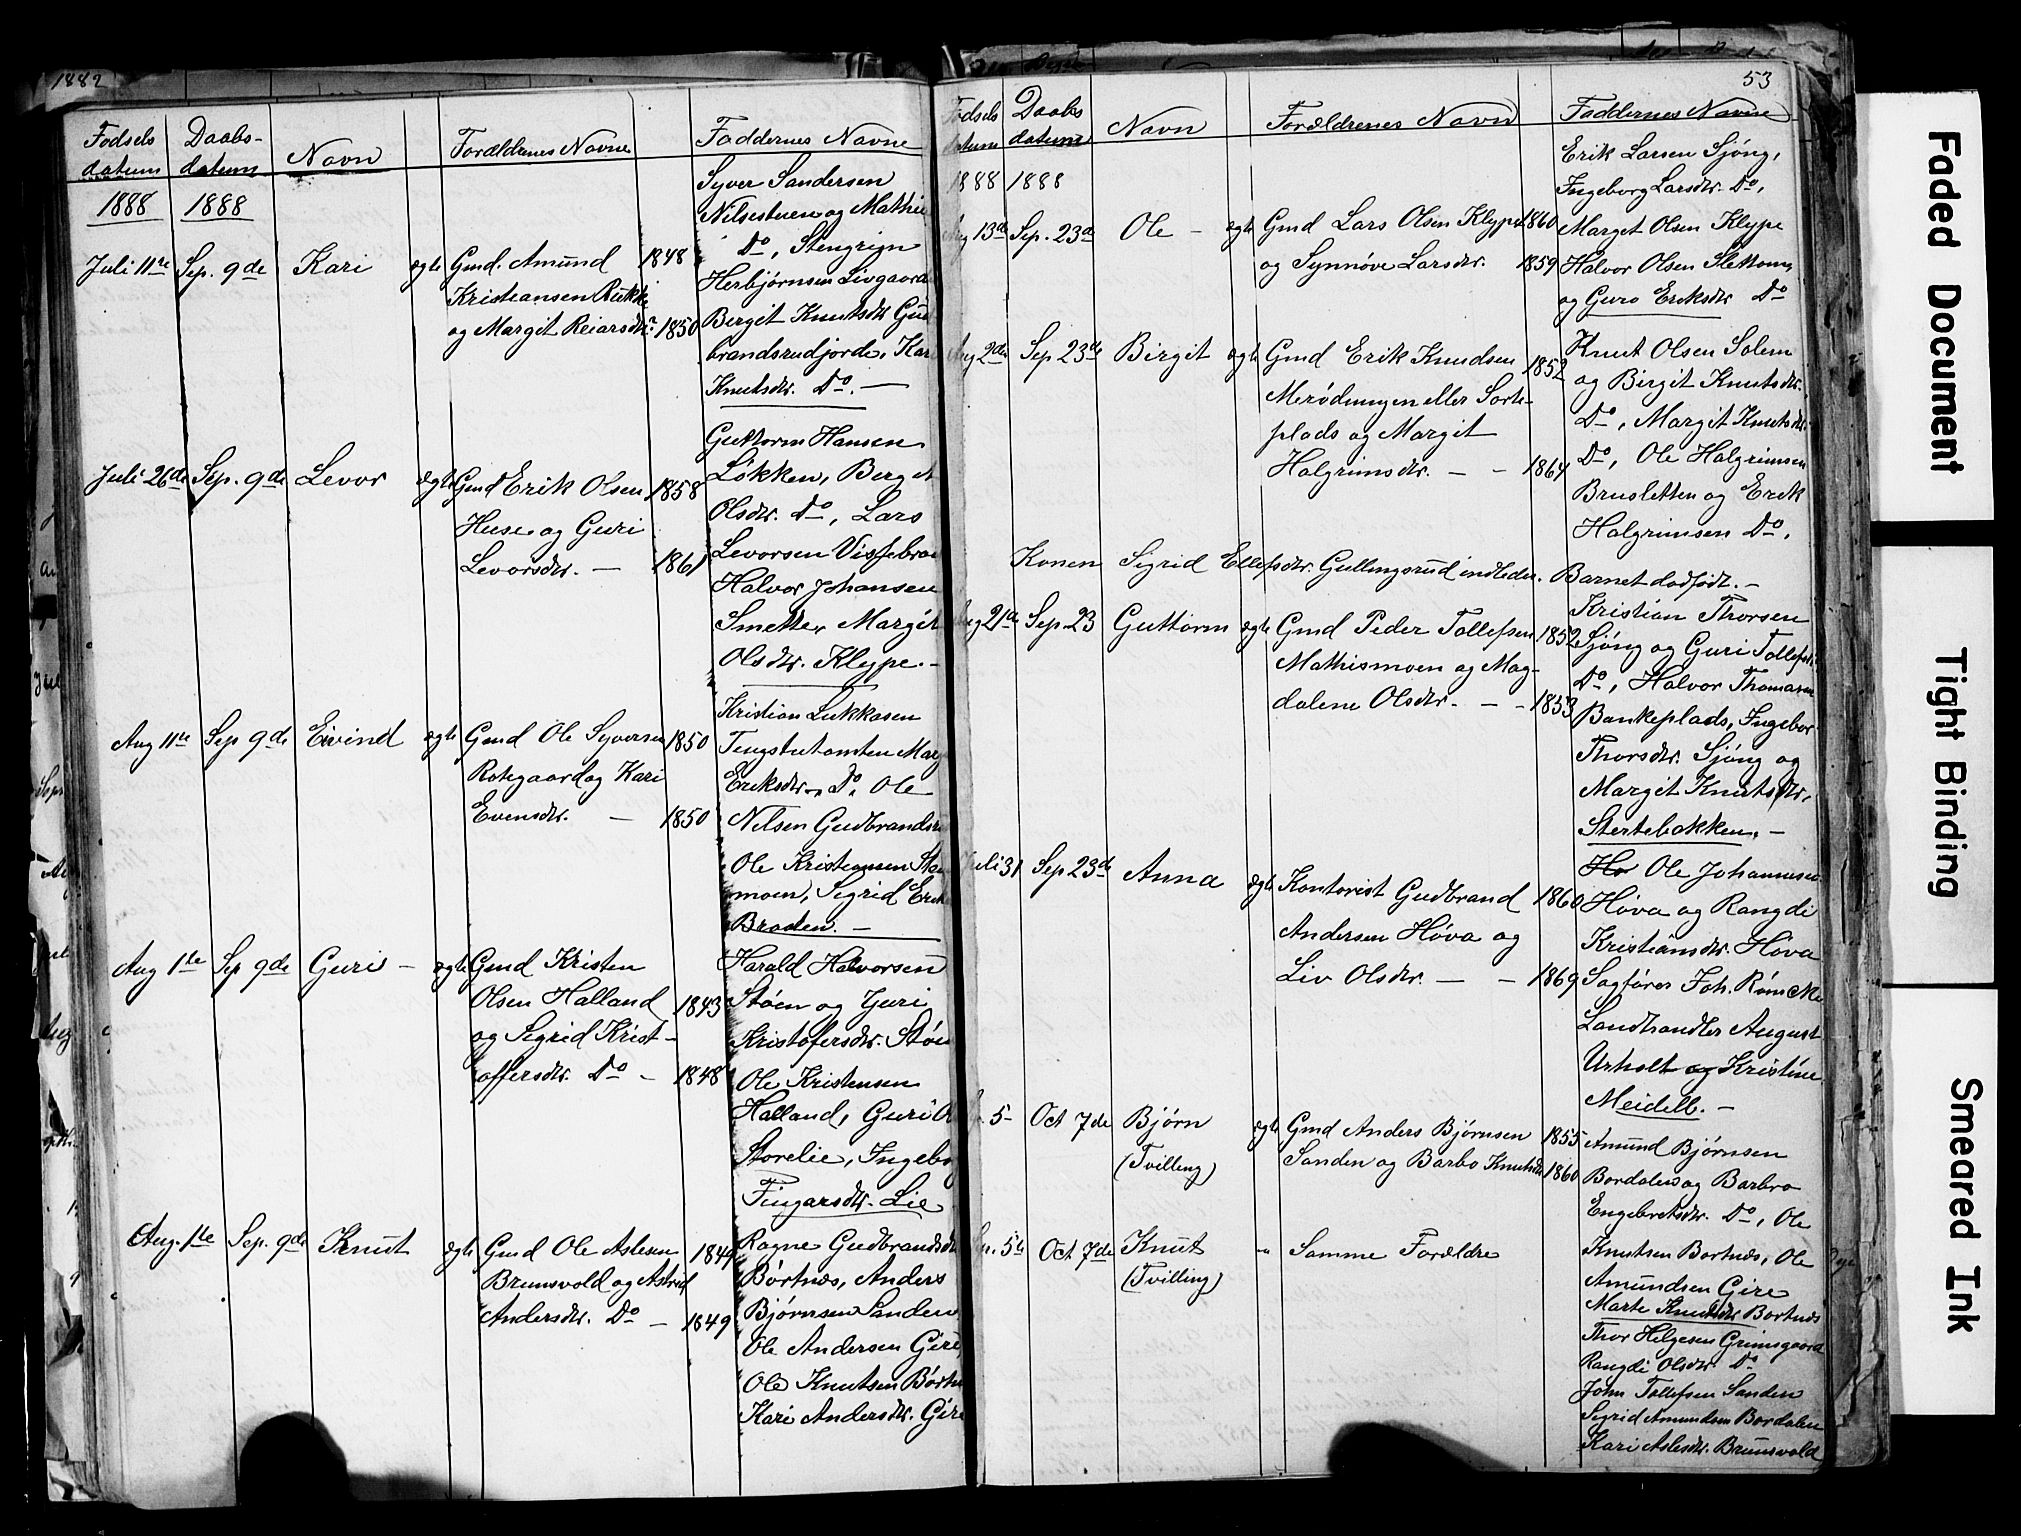 1882
Fødsels
datum
Daabs-
datum
Navn
Forældrenes Navne
Faddernes Navne
1888
1888
Juli 11te
Sep. 9de
Kari
ægte
Gmd. Amund 1848
Kristiansen Rukke
og Margit Reiarsdtr. 1850
Syver Sandersen
Nilsestuen og Mathi
Do, Stengrim
Herbjørnsen Livgaard
Birgit Knutsdtr Gul
brandsrudjorde, Kari
Knutsdtr. Do. —
Juli 26de
Sep. 9de
Levor
ægte
Gmd Erik Olsen 1858
Huse og Guri
Levorsdtr. — 1861
Guttorm Hansen
Løkken, Berget
Olsdtr. Do, Lars
Levorsen
Halvor Johansen
Smette, Margit
Olsdtr. Klype. —
Aug 11te
Sep 9de
Eivind
ægte
Gmd Ole Syversen 1850
Rotegaard og Kari
Evensdtr. — 1850
Kristian Lukkasen
Marg
Eriksdtr. Do. Ole
Nilsen Gudbrandsr
Ole Kristiansen
moen, Sigrid Erik
Braaten. —
Aug 1te
Sep 9de
Guri —
ægte
Gmd Kristen
Olsen Halland 1843
og Sigrid Krist-
offersdtr. Do — 1848
Harald Halvorsen
Støen og Juri
Kristofersdtr. Støen
Ole Kristensen
Halland, Guri O
Storelie, Ingebo
Fingarsdtr. Lie
Aug. 1te
Sep. 9de
Knut
ægte
Gmd Ole Aslesen 1849
Brunsvold og Astrid
Andersdtr. Do — 1849
Ragne Gudbrandsdtr
Børtnæs, Anders
Bjørnsen Sanden
Ole Andersen Gire,
Ole Knutsen Børtn
Kari Andersdtr. Gire
53
Fødsels
datum
Daabs
datum
Navn
Forældrenes Navn
Faddernes Navne
1888
1888
Aug 13de
Sep. 23de
Ole —
ægte
Gmd Lars Olsen Klype 1860
og Synnøve Larsdtr. 1859
Erik Larsen Sjöng,
Ingeborg Larsdtr. Do,
Marget Olsen Klype
Halvor Olsen Slettom
og Guro Eriksdtr Do
Aug 2de
Sep 23de
Birgit
ægte
Gmd Erik Knudsen 1852
Merödungen eller Sorte-
plads og Margit
Halgrimsdtr. — — 1864
Knut Olsen Solem
og Birgit Knutsdtr.
Do, Margit Knutsdtr.
Do, Ole Halgrimsen
Brusletten og Erik
Halgrimsen Do.
Konen Sigrid Ellefsdtr. Gullingsrud indleder. Barnet dødfødt. —
Aug 21de
Sep 23
Guttorm
ægte
Gmd Peder Tollefsen 1852
Mathismoen og Mag-
dalene Olsdtr. — — 1853
Kristian Thorsen
Sjöng og Guri Tollefsdtr.
Do, Halvor Thomasen
Bankeplads, Ingebor
Thorsdtr. Sjöng og
Margit Knutsdtr,
Stertebakken. —
Juli 31
Sep 23de
Anna
ægte
Kontorist Gudbrand 1860
Andersen Høva og
Liv Olsdtr. — — 1869
Ho Ole Johannesen
Høva og Rangdi
Kristiansdtr. Høva
Sagfører Joh.
Landhandler August
Urholt og Kristine
Meidell. —
5 —
Oct 7de
Bjørn
(Tvilling)
ægte
Gmd Anders Bjørnsen 1855
Sanden og Barbo Knutsdtr 1860
Amund Bjørnsen
Bordalen og Barbro
Engebretsdtr. Do, Ole
Sep. 5te
Oct 7de
Knut
(Tvilling)
"
Samme Forældre
Knutsen Bortnæs, Ole
Amundsen Gire
Marte Knutsdtr Bortnæs
Thor Helgesen Grimsgaard
Rangdi Olsdtr. Do
John Tollefsen Sanden
Sigrid Amundsen Bordalen
Kari Aslesdtr. Brunsvold
Faded Document
Tight Binding
Smeared Ink